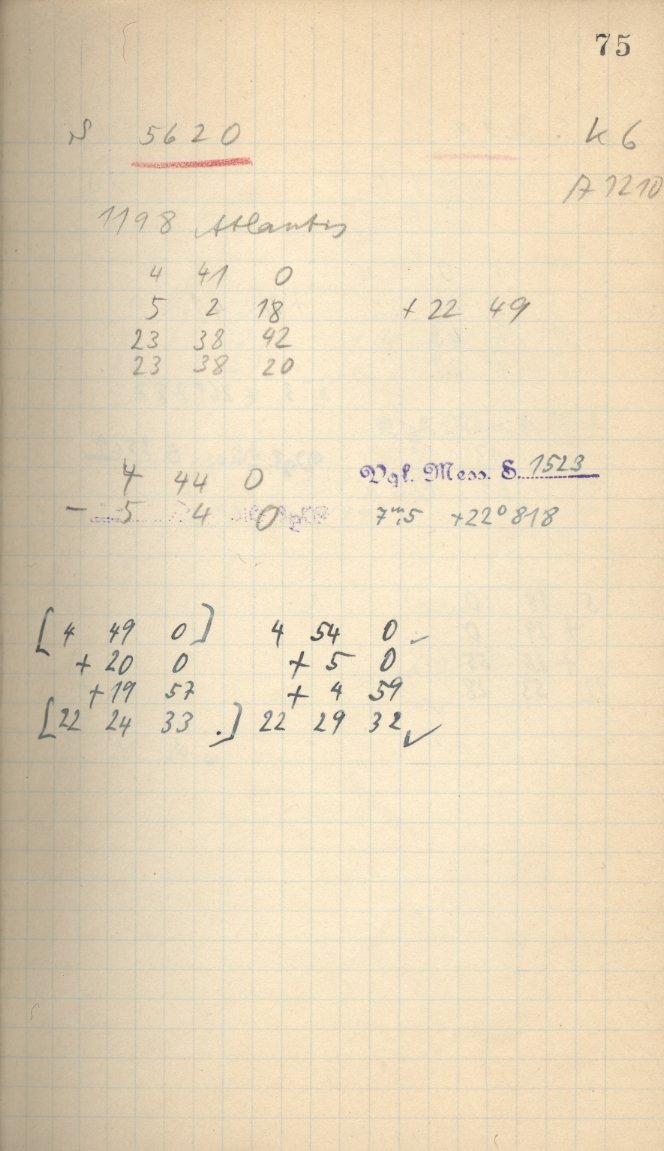 75
S 5620 K 6
A 1210
1198 Atlantis
4 41 0
5 2 18 + 22 49
23 38 42
23 38 20
4 44 0 Vgl. Mess. S. 1523
– 5 4 0 7ᵐ,5 +22°818
[4 49 0] 4 54 0 –
+ 20 0 + 5 0
+ 19 57 + 4 59
[22 24 33 .] 22 29 32 ✓